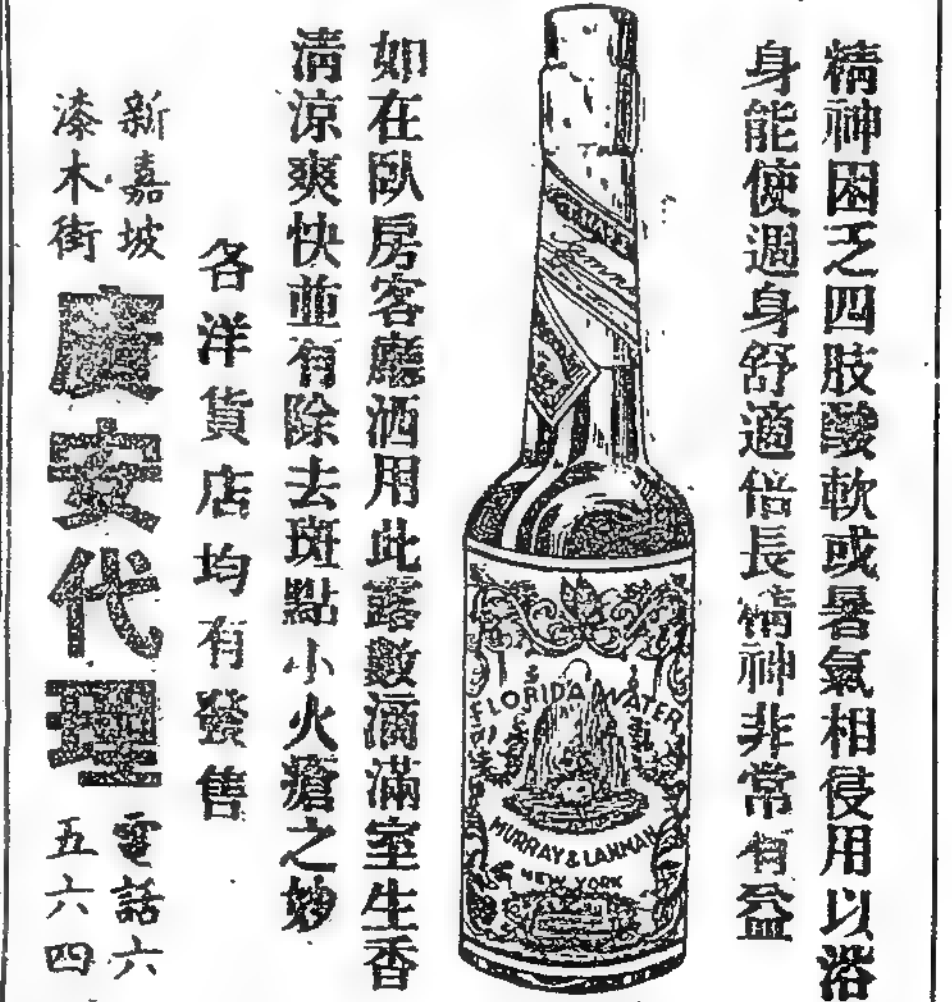 精神困乏四肢酸軟或暑氣相侵用以浴
身能使週身舒適倍長精神非常有益
FLORIDA WATER
MURRAY & LANMAN
NEW YORK
如在臥房客廳洒用此露數滴滿室生香
清涼爽快並有除去斑點小火瘡之妙
各洋貨店均有發售
新嘉坡
漆木街
廣安代理
電話六
五六四